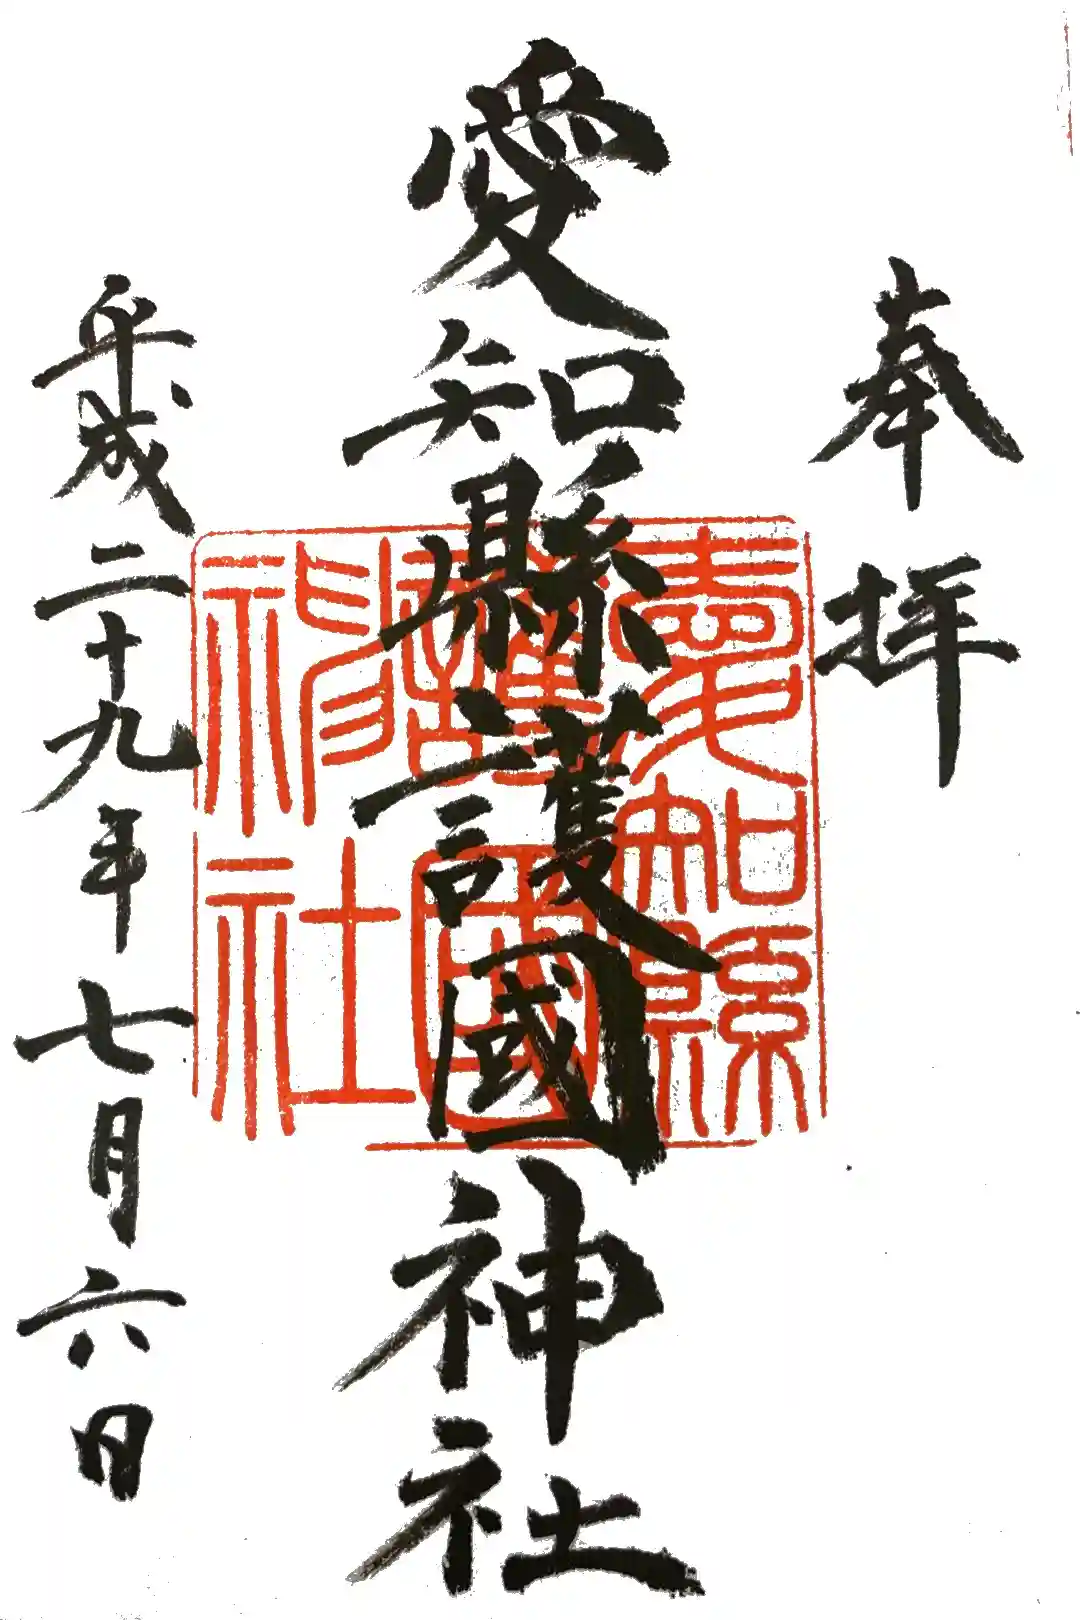 奉拝
愛知縣護國神社
平成二十九年七月六日
愛知縣
護國
神社